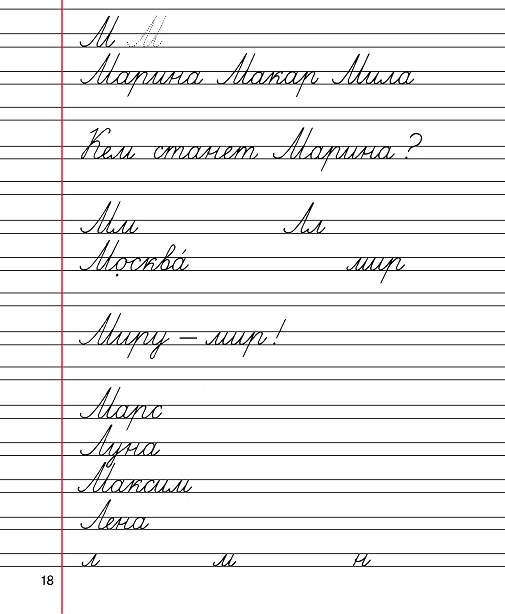 М М
Марина Макар Мила
Кем станет Марина?
Мм Лл
Москва́ мир
Миру – мир!
Марс
Луна
Максим
Лена
л м н
18